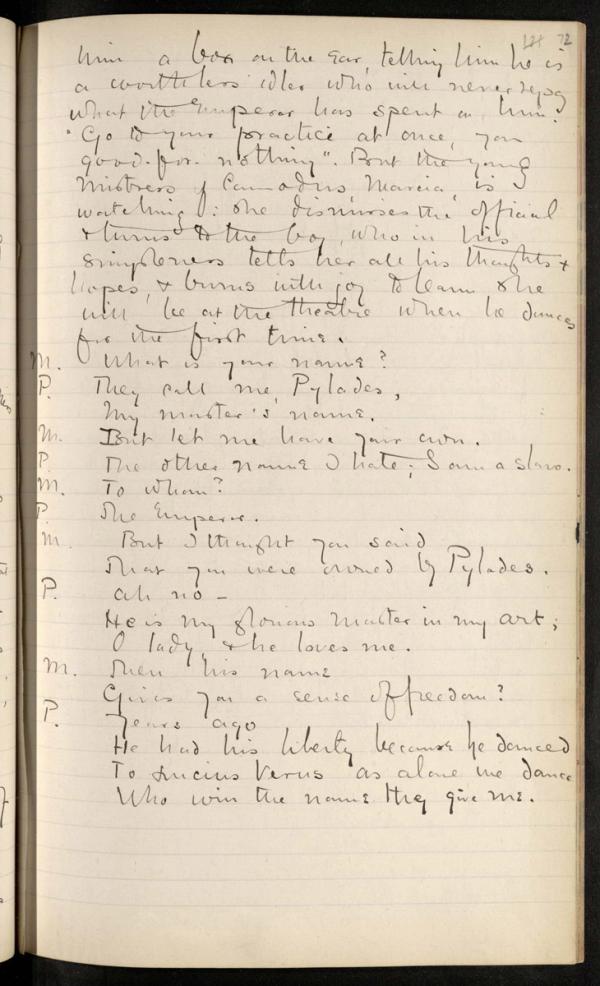 121 72
him a box on the ear, telling him he is
a worthless idler who will never repay
what the Emperor has spent on him.
"Go to your practice at once, you
good-for-nothing". But the young
Mistress of Commodus, Marcia, is
watching: she dismisses the official
& turns to the boy, who in his
simpleness tells her all his thoughts &
hopes, & burns with joy to learn she
will be at the theatre when he dances
for the first time.
M. What is your name?
P. They call me, Pylades,
My master's name.
M. But let me have your own.
P. The other name I hate; I am a slave.
M. To whom?
P. The Emperor.
M. But I thought you said
That you were owned by Pylades.
P. Ah no —
He is my glorious master in my art;
O lady, & he loves me.
M. Then his name
Gives you a sense of freedom?
P. Years ago
He had his liberty because he danced
To Lucius Verus as alone we dance
Who win the name they give me.